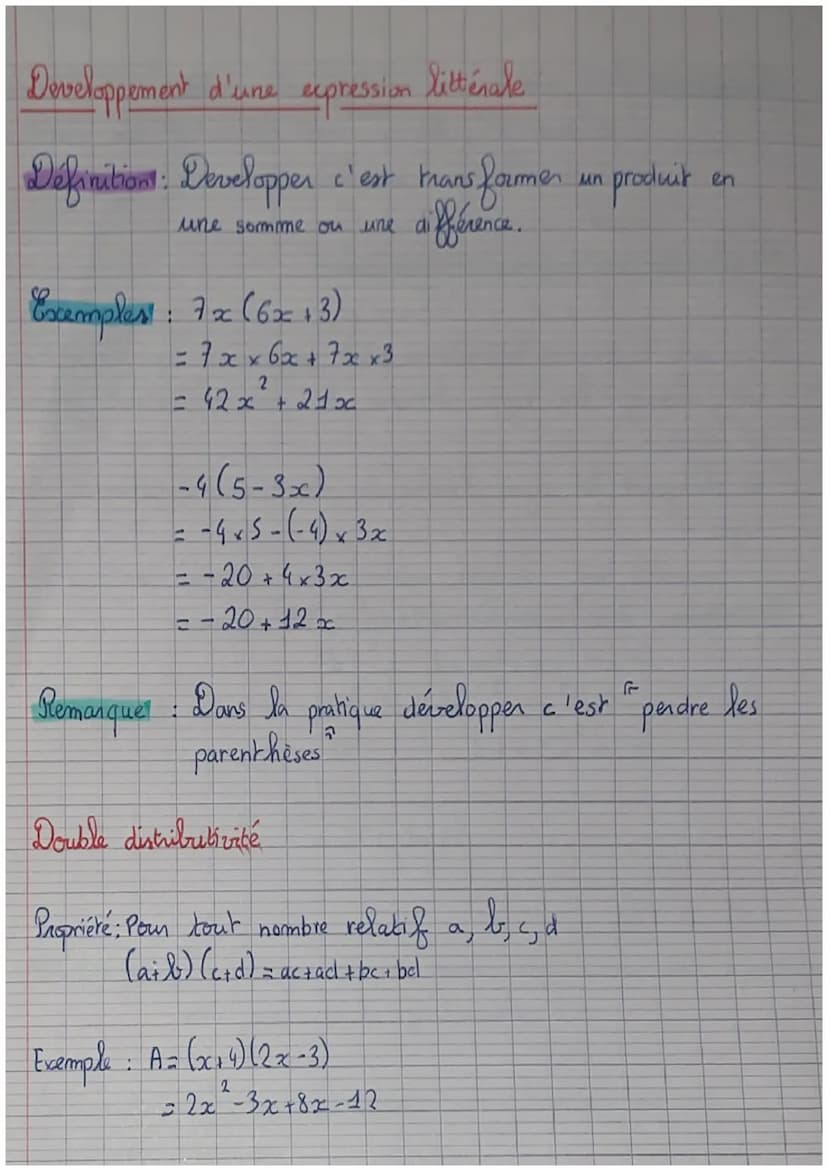 Developpement d'une expression littérale
Définition : Developper c'est transformer un produit en
une somme ou une différence.
Exemples : 7x(6x+3)
= 7x × 6x + 7x × 3
= 42x² + 21x
-4(5-3x)
= -4×5-(-4)×3x
= -20+4×3x
= -20+12x
Remarque : Dans la pratique développer c'est " perdre les
parenthèses"
Double distributivité
Propriété : Pour tout nombre relatif a, b, c, d
(a+b)(c+d) = ac+ad+bc+bd
Exemple : A = (x+4)(2x-3)
= 2x²-3x+8x-12